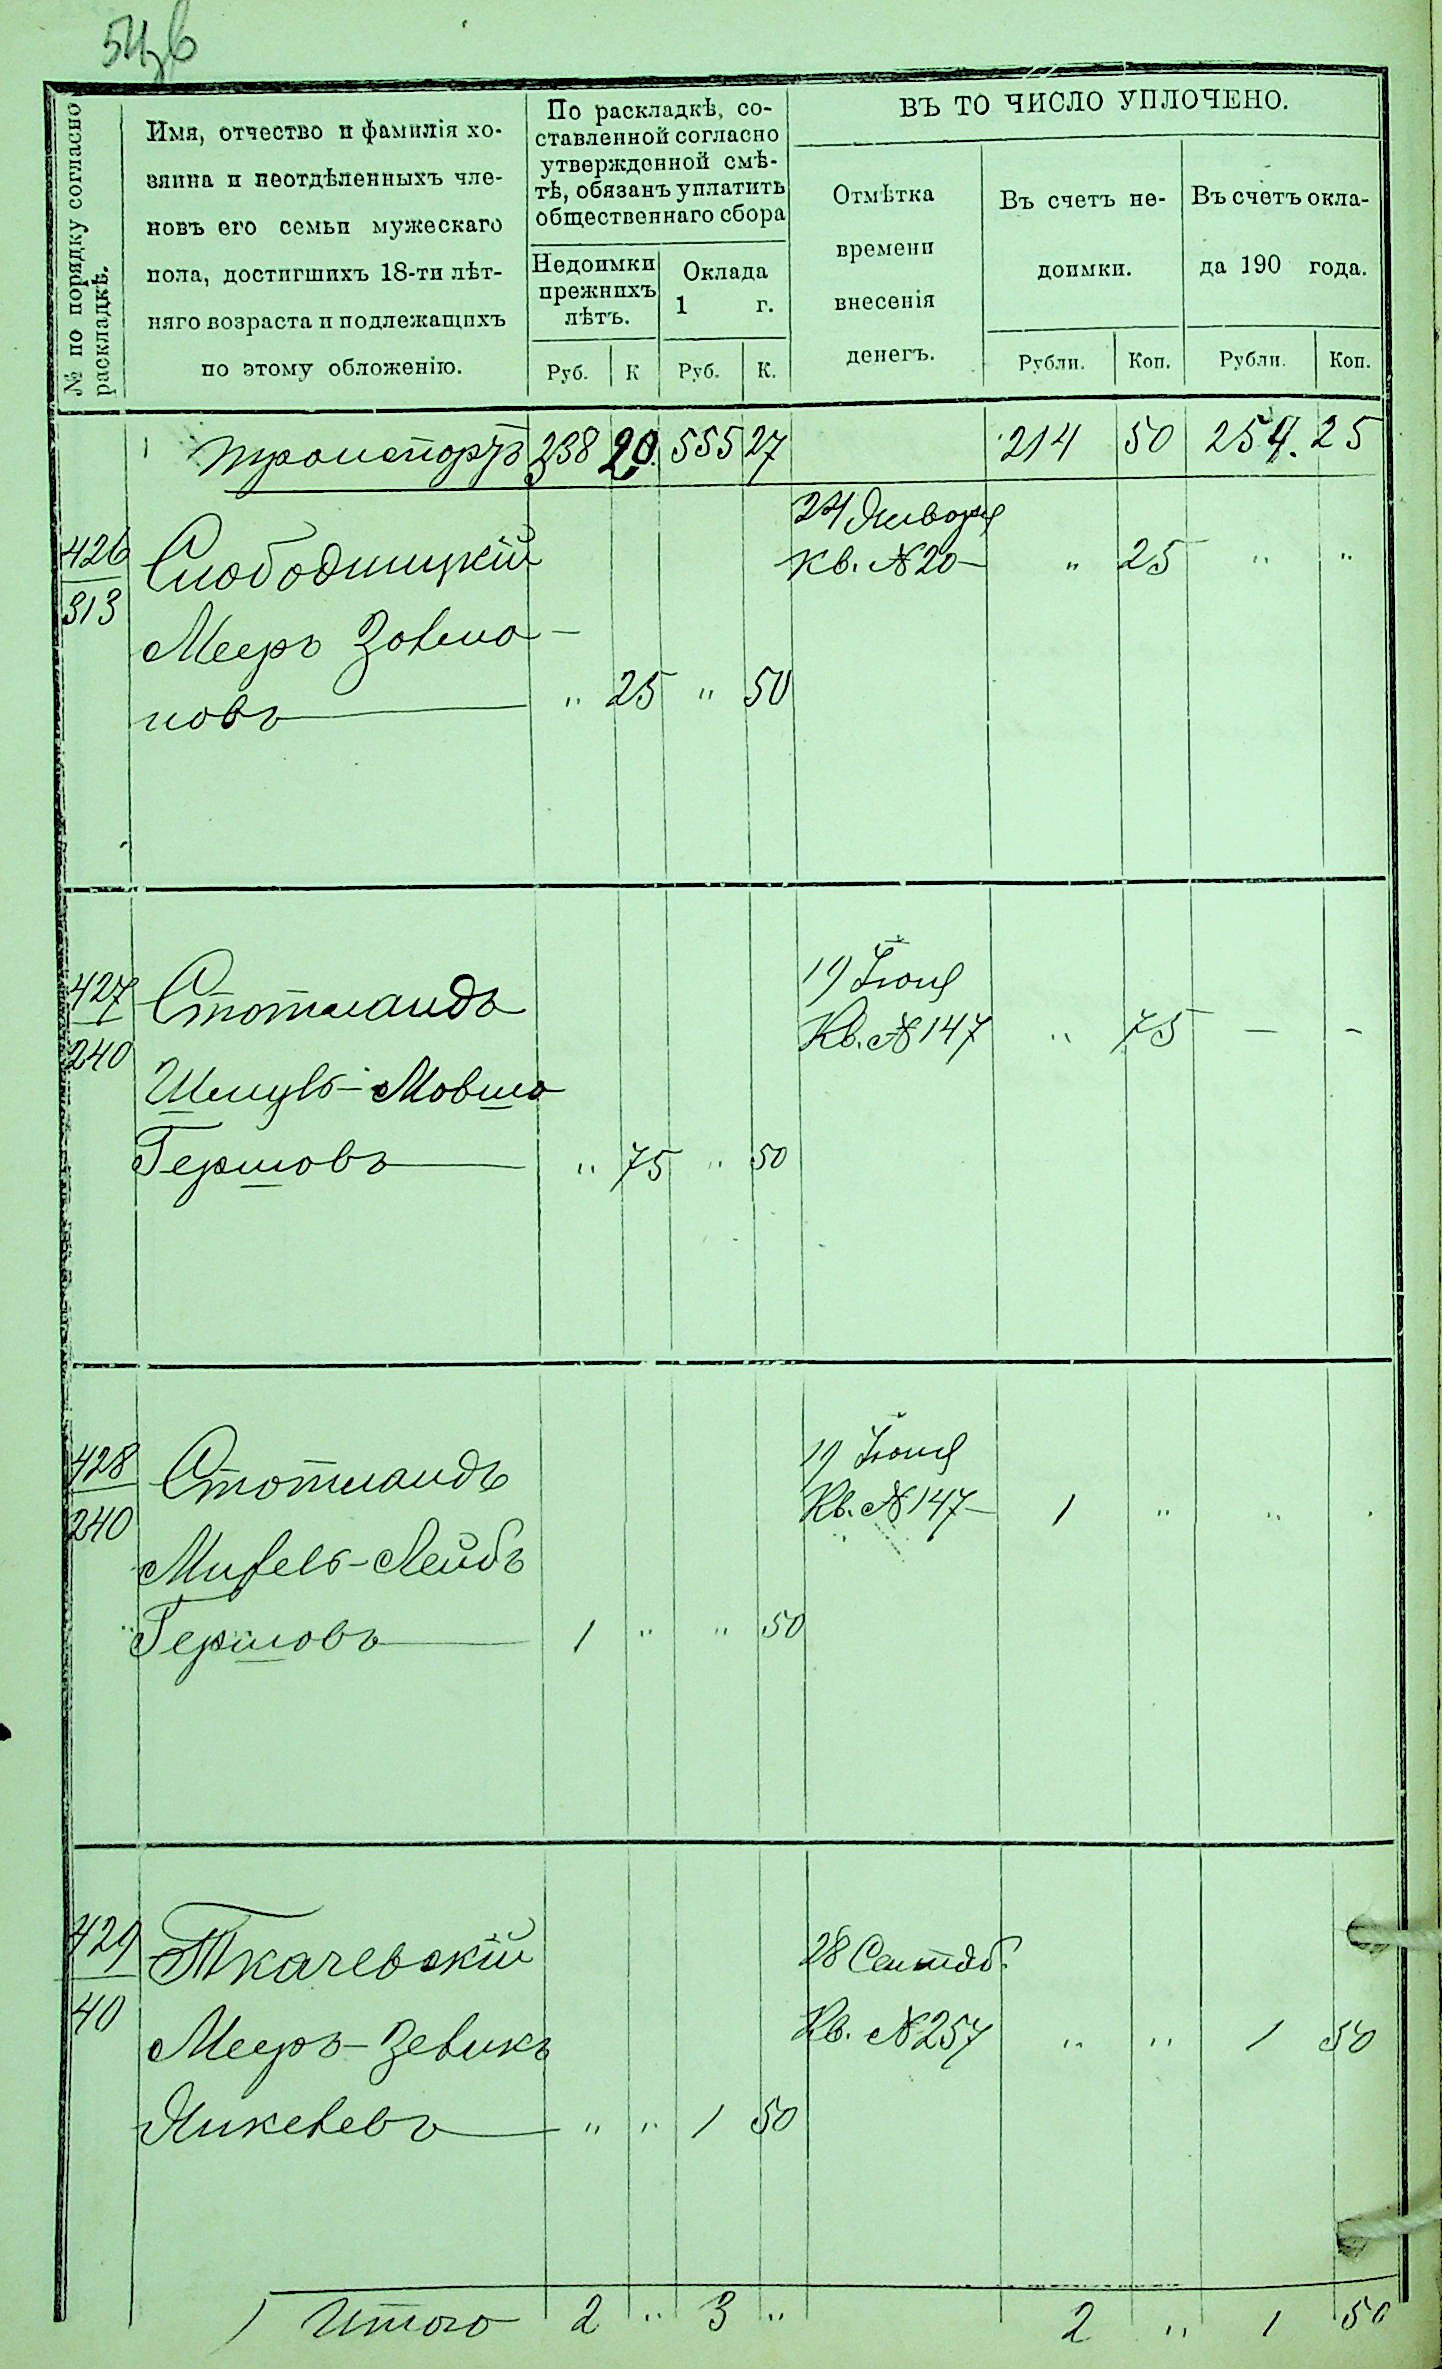 № по порядку согласно
раскладкѣ.
Имя, отчество и фамилія хо-
зяина и неотдѣленныхъ чле-
новъ его семьи мужескаго
пола, достигшихъ 18-ти лѣт-
няго возраста и подлежащихъ
по этому обложенію.
По раскладкѣ, со-
ставленной согласно
утвержденной смѣ-
тѣ, обязанъ уплатить
общественнаго сбора
Недоимки
прежнихъ
лѣтъ.
Оклада
1 г.
Руб. К Руб. К.
ВЪ ТО ЧИСЛО УПЛОЧЕНО.
Отмѣтка
времени
внесенія
денегъ.
Въ счетъ не-
доимки.
Въ счетъ окла-
да 190 года.
Рубли. Коп. Рубли. Коп.
Транспортъ 238 20 555 27 214 50 254 25
24 Января
426 Слободницкій Кв. № 20 — " 25 " "
313
Мееръ
новъ — " 25 " 50
19 Іюня
427 Стотландъ Кв. № 147 " 75 — —
240
Шмуль-Мовша
Гершовъ — " 75 " 50
19 Іюня
428 Стотландъ Кв. № 147 — 1 " "
240
Михель-Лейбъ
Гершовъ — 1 " " 50
429 Ткачевскій 28 Сентяб.
40 Кв. № 257 " " 1 50
Мееръ-Зевикъ
Янкелевъ — " " 1 50
Итого 2 " 3 " 2 " 1 50